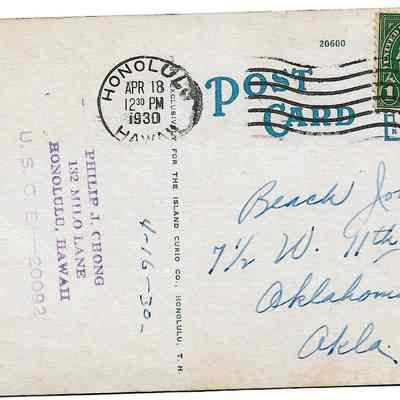 20600
POST
CARD
HONOLULU
APR 18
12 30 PM
1930
HAWAII
UNITED
1
PHILIP J. CHONG
132 MILO LANE
HONOLULU, HAWAII
U.S.C.E.—20092
4-16-30.
EXCLUSIVELY FOR THE ISLAND CURIO CO., HONOLULU, T. H.
Beach
7½ W. 11th
Oklahom
Okla.